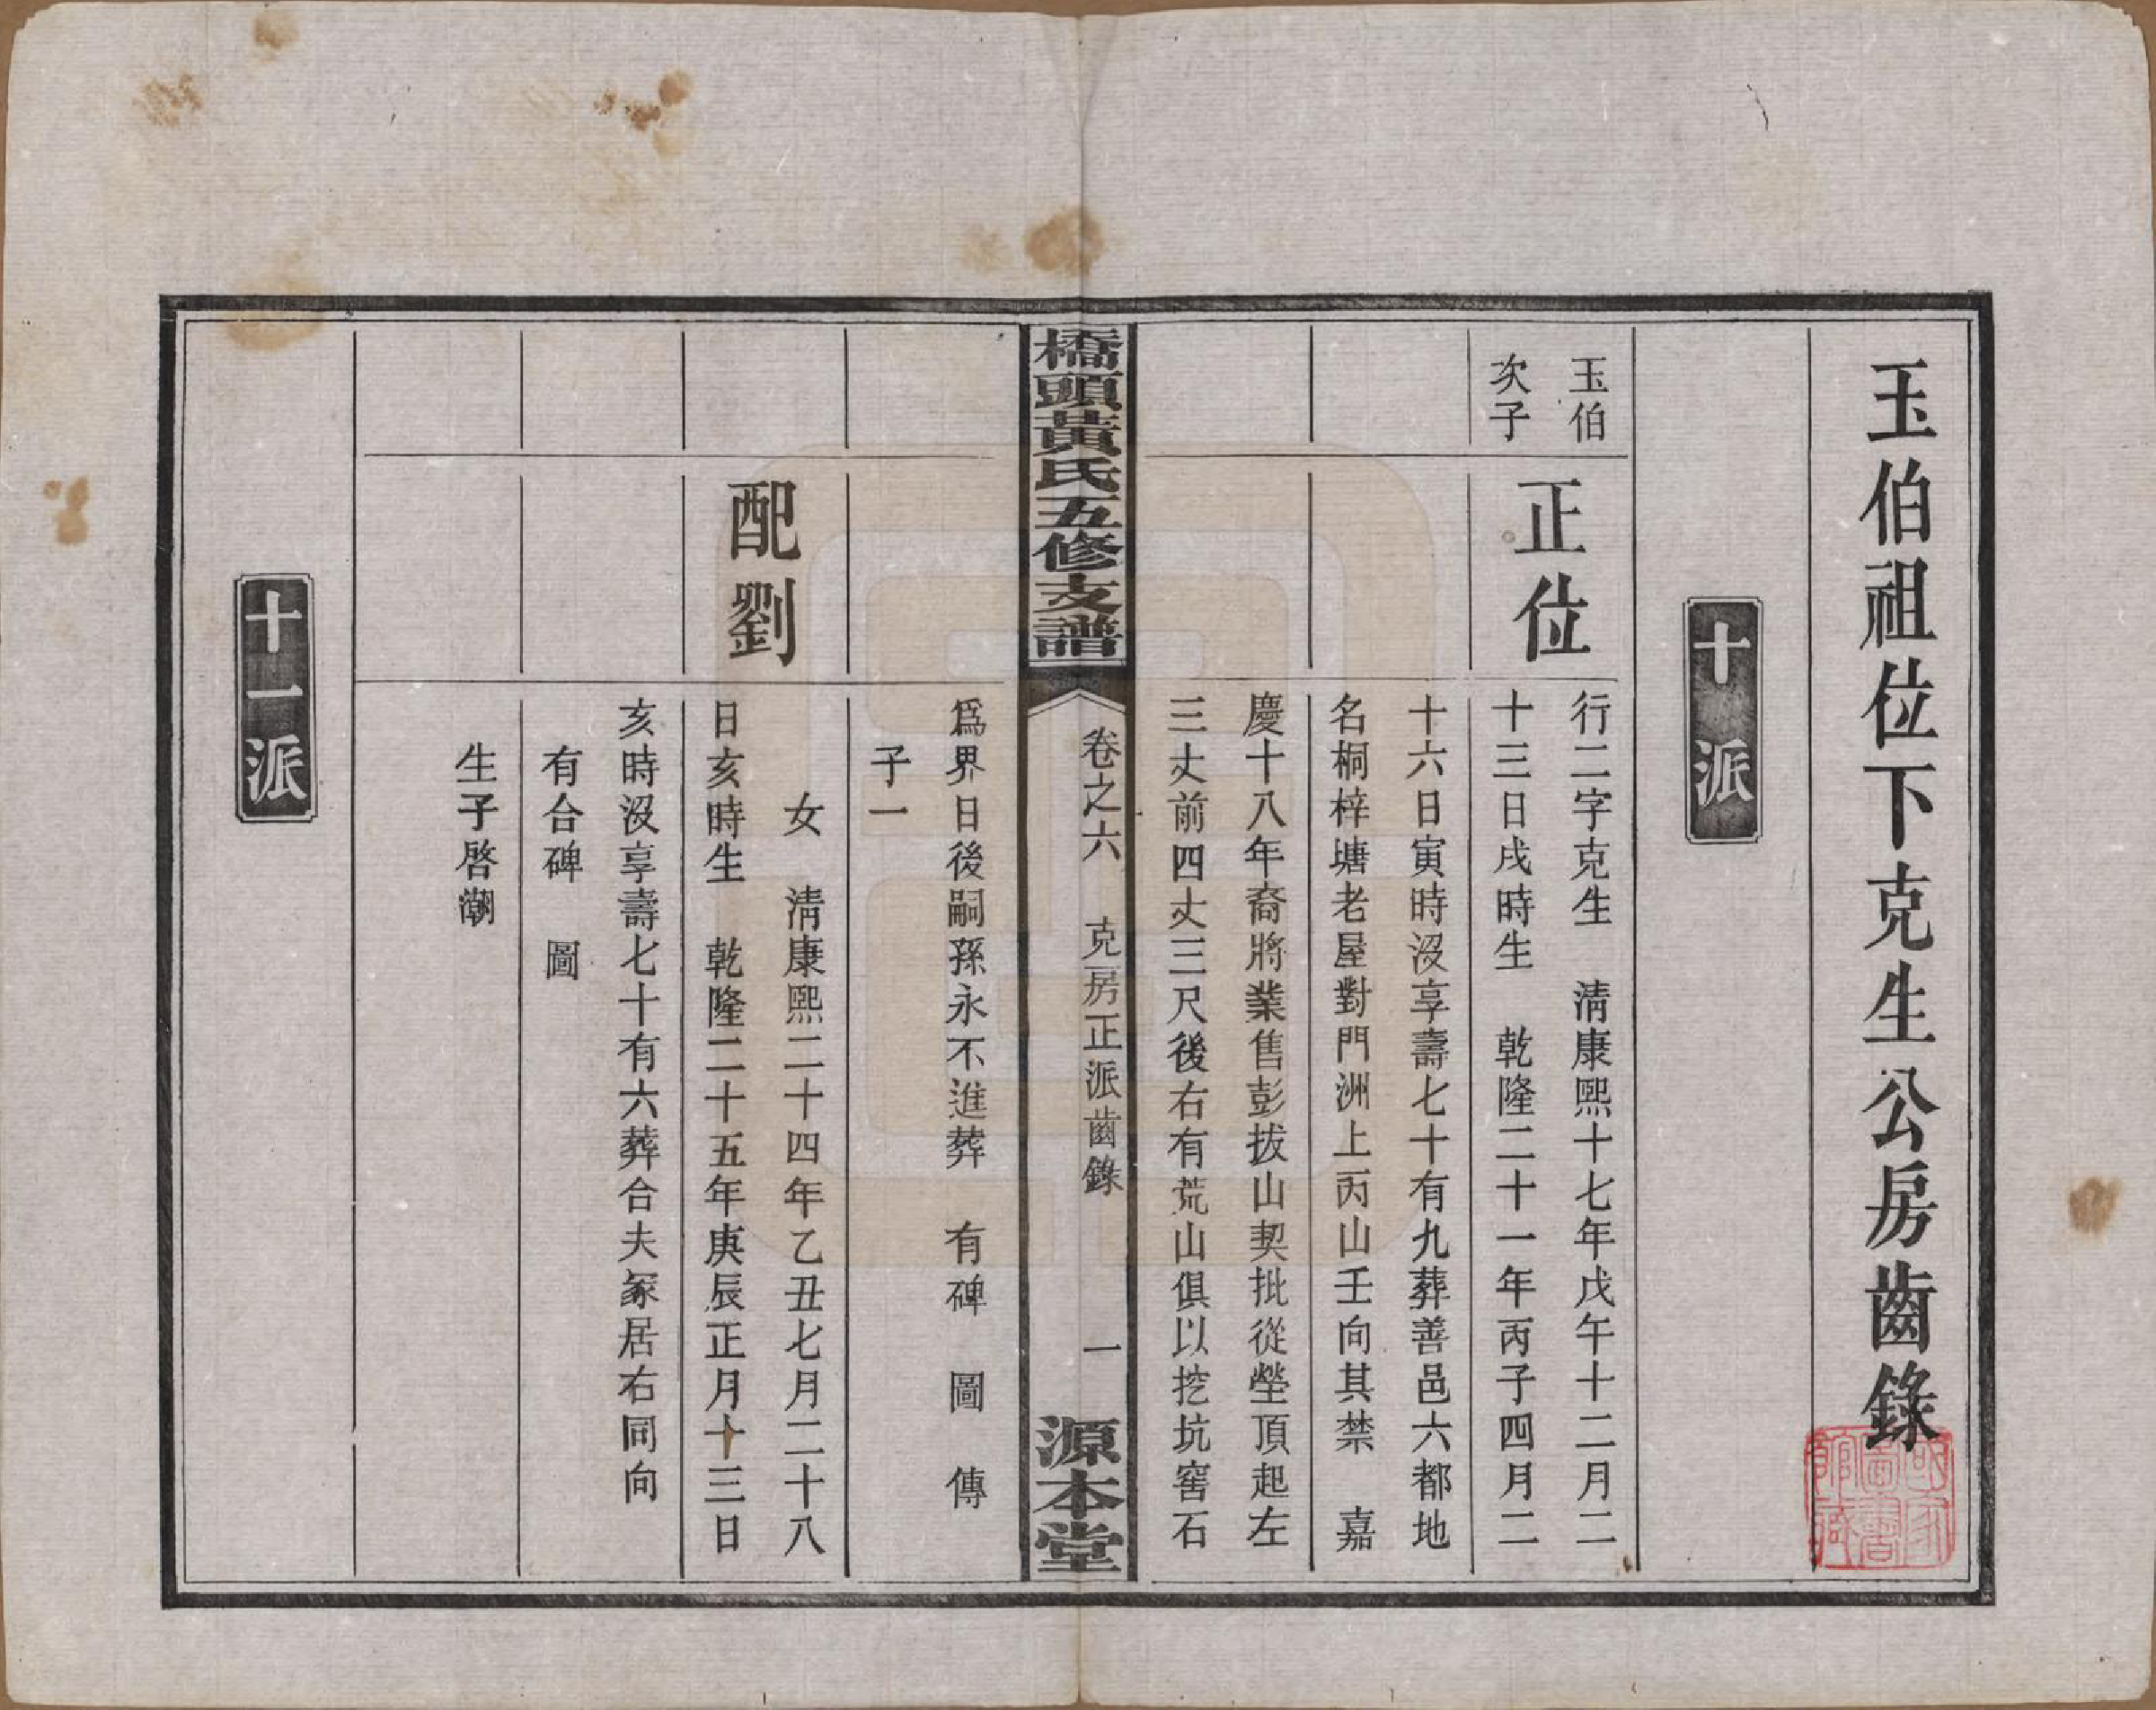 玉伯祖位下克生公房齒錄
十派
玉伯
次子
正位
行二字克生 淸康熙十七年戊午十二月二
十三日戌時生 乾隆二十一年丙子四月二
十六日寅時沒享壽七十有九葬善邑六都地
名桐梓塘老屋對門洲上丙山壬向其禁 嘉
慶十八年裔將業售彭拔山契批從塋頂起左
三丈前四丈三尺後右有荒山俱以挖坑窖石
橋頭黃氏五修支譜
卷之六 克房正派齒錄 一
源本堂
爲界日後嗣孫永不進葬 有碑 圖 傳
子一
配劉
女 淸康熙二十四年乙丑七月二十八
日亥時生 乾隆二十五年庚辰正月十三日
亥時沒享壽七十有六葬合夫冢居右同向
有合碑 圖
生子啓潮
十一派
國家圖書館藏